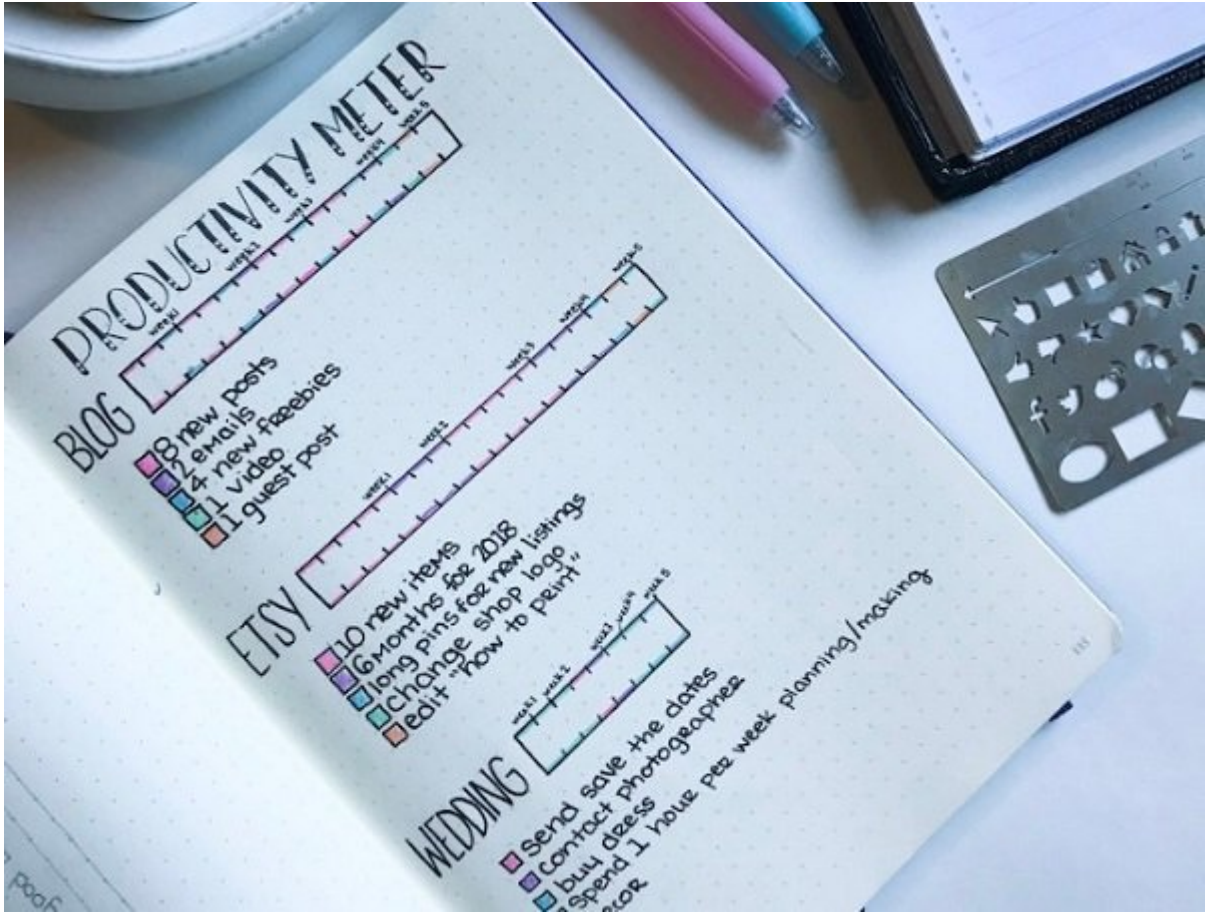 PRODUCTIVITY METER
week1 week2 week3 week4 week5
BLOG
8 new posts
2 emails
4 new freebies
1 video
1 guest post
week1 week2 week3 week4 week5
ETSY
10 new items
6 months for 2018
long pins for new listings
change shop logo
edit "how to print"
week1 week2 week3 week4 week5
WEDDING
send save the dates
contact photographer
buy dress
spend 1 hour per week planning/making
decor